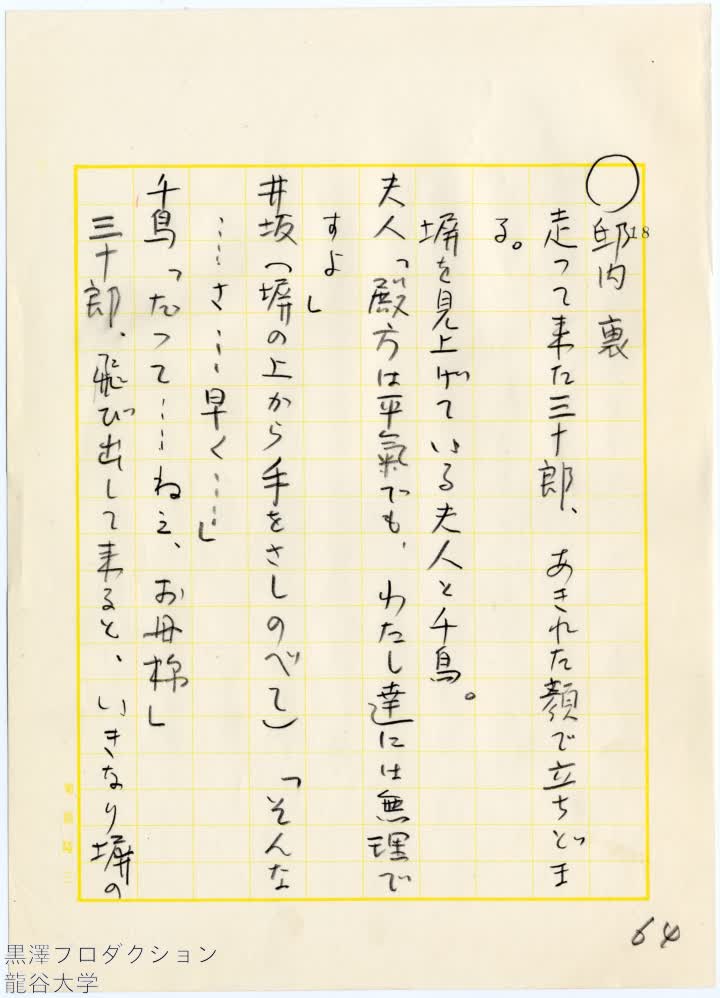 ○邸内 裏
18
走って来た三十郎、あきれた顔で立ちどま
る。
塀を見上げている夫人と千鳥。
夫人「殿方は平氣でも、わたし達には無理で
すよ」
井坂(塀の上から手をさしのべて)「そんな
……さ……早く……」
千鳥「だって……ねえ、お母様」
三十郎、飛び出して来ると、いきなり塀の
64
黒澤プロダクション
龍谷大学